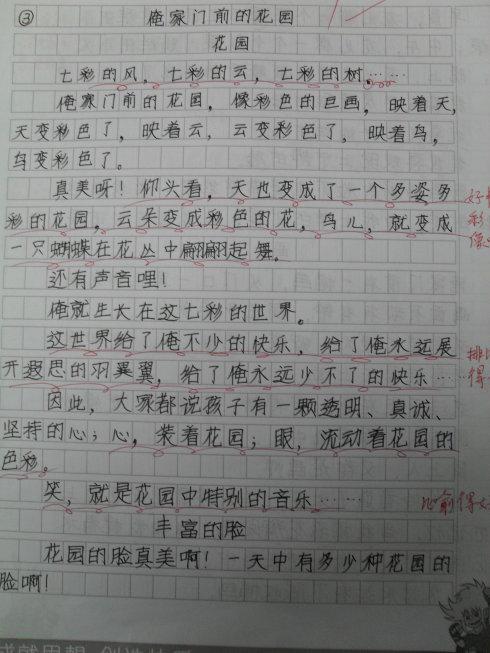 ③ 俺家门前的花园
花园
七彩的风，七彩的云，七彩的树……
俺家门前的花园，像彩色的巨画，映着天，
天变彩色了，映着云，云变彩色了，映着鸟，
鸟变彩色了。
真美呀！仰头看，天也变成了一个多姿多
彩的花园，云朵变成彩色的花，鸟儿，就变成
一只蝴蝶在花丛中翩翩起舞。
还有声音哩！
俺就生长在这七彩的世界。
这世界给了俺不少的快乐，给了俺永远展
开遐思的羽翼，给了俺永远少不了的快乐……
因此，大家都说孩子有一颗透明、真诚、
坚持的心；心，装着花园；眼，流动着花园的
色彩。
笑，就是花园中特别的音乐……
丰富的脸
花园的脸真美啊！一天中有多少种花园的
脸啊！